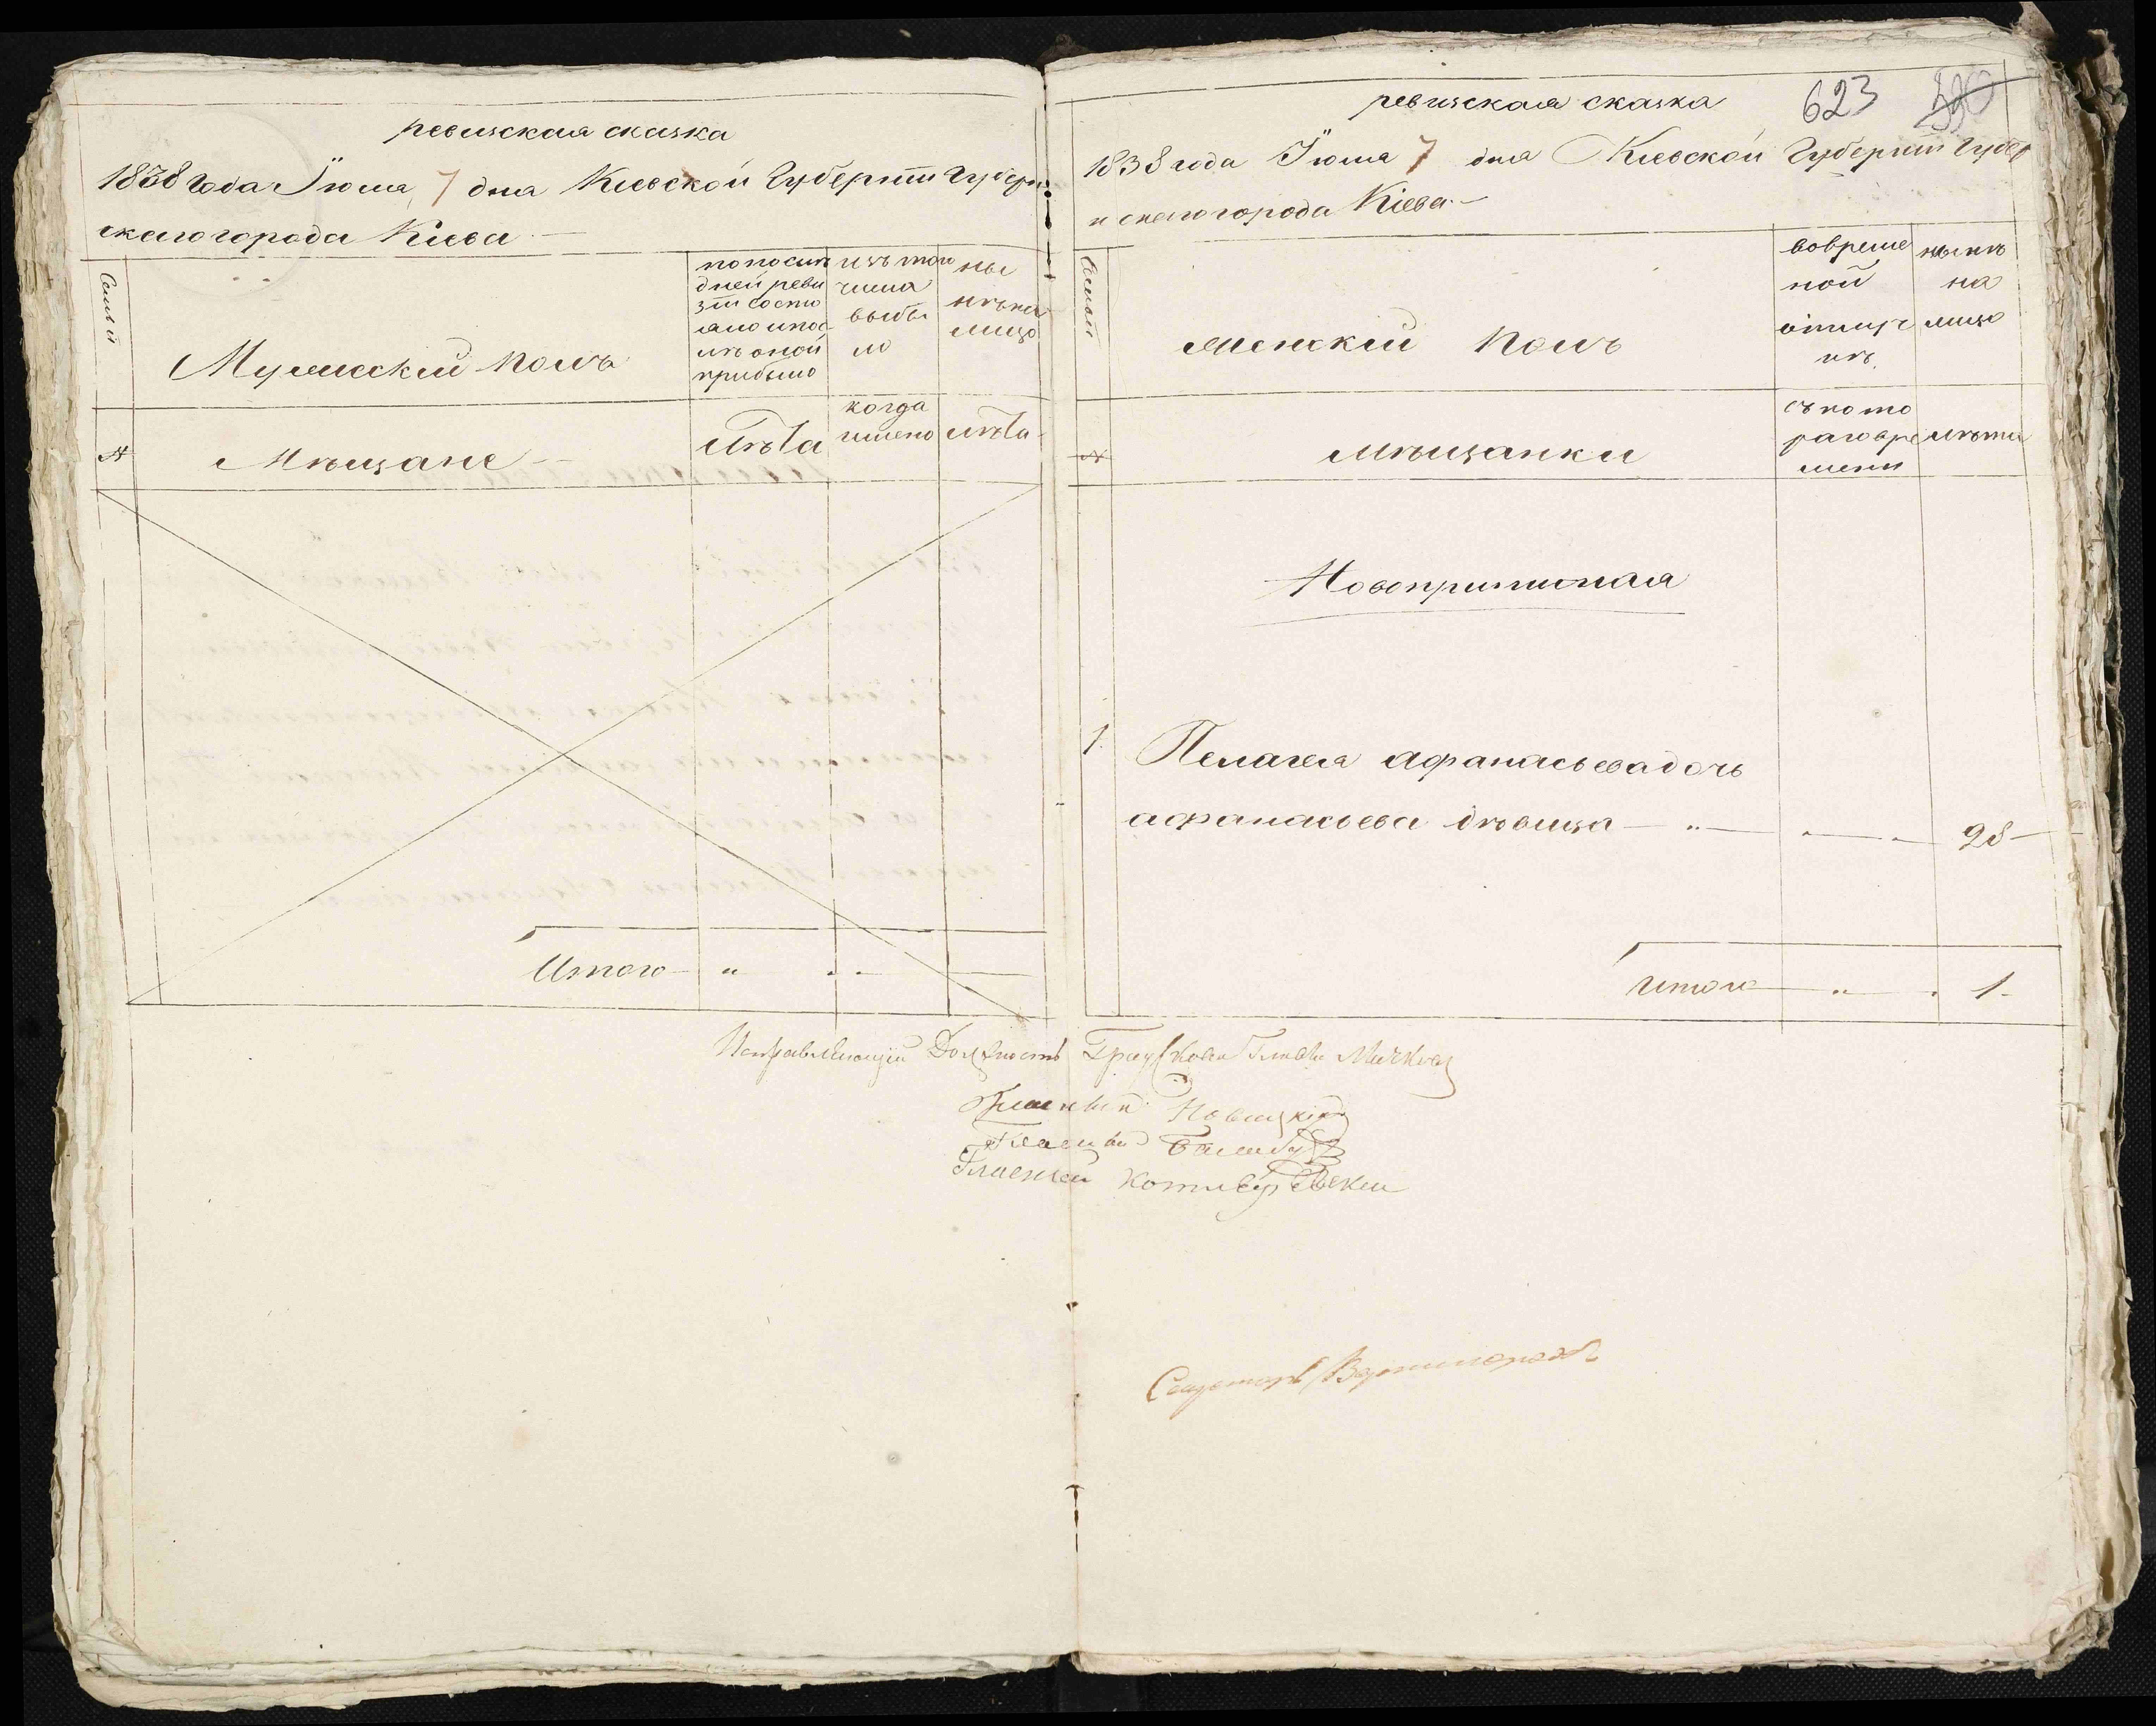 ревизская сказка
1838 года Іюля 7 дня Кіевской Губерніи Губерн
скаго города Кіева
Семьи
Мужескій полъ
по послѣ
дней реви
зіи состо
яло и пос
лѣ оной
прибыло
изъ того
числа
выбы
ло
ны
нѣ на
лицо
№
Мѣщане
Лѣта
когда
имено
лѣта
Итого
623
ревизская сказка
1838 года Іюля 7 дня Кіевской Губерніи Губер
нскаго города Кіева
Семьи
женскій полъ
во време
ной
отлуч
кѣ
нынѣ
на
лицо
№
мѣщанки
съ кото
раго вре
мени
лѣта
Новоприписная
1. Пелагея Афанасьева дочь
афанасьева дѣвица 28
Итого 1.
Исправляющій Должность Градскаго Главы
Гласный Новицкій
Гласный
Гласный
Секретарь